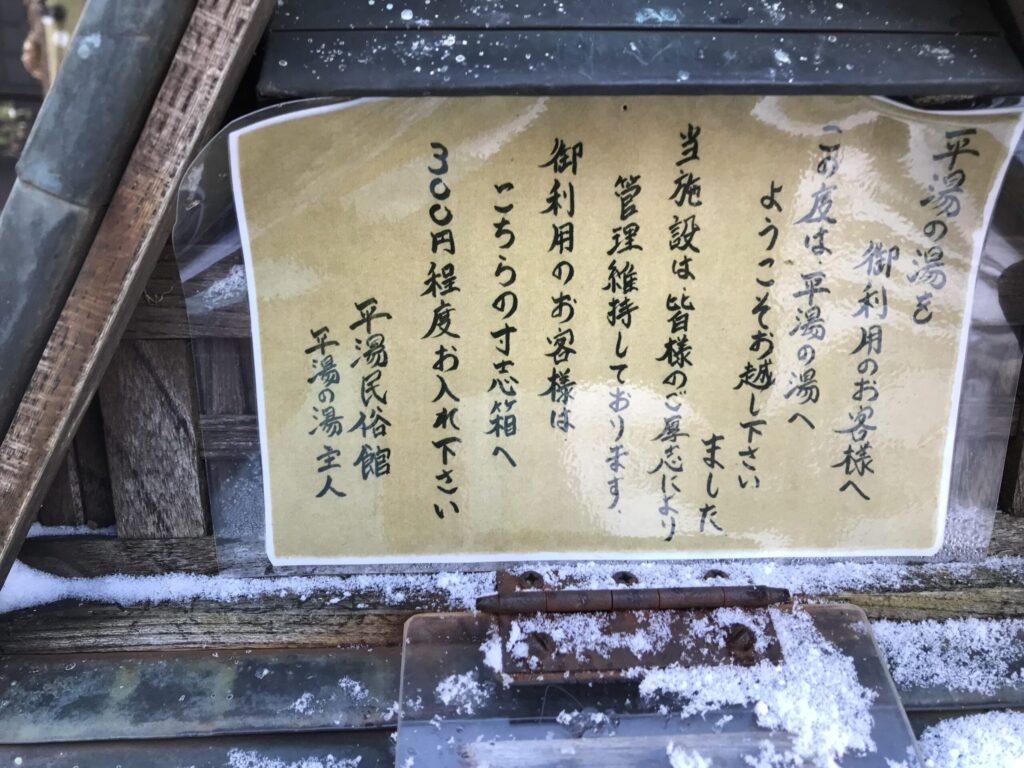 平湯の湯を
御利用のお客様へ
この度は平湯の湯へ
ようこそお越し下さい
ました
当施設は皆様のご厚志により
管理維持しております.
御利用のお客様は
こちらの寸志箱へ
300円程度お入れ下さい
平湯民俗館
平湯の湯主人